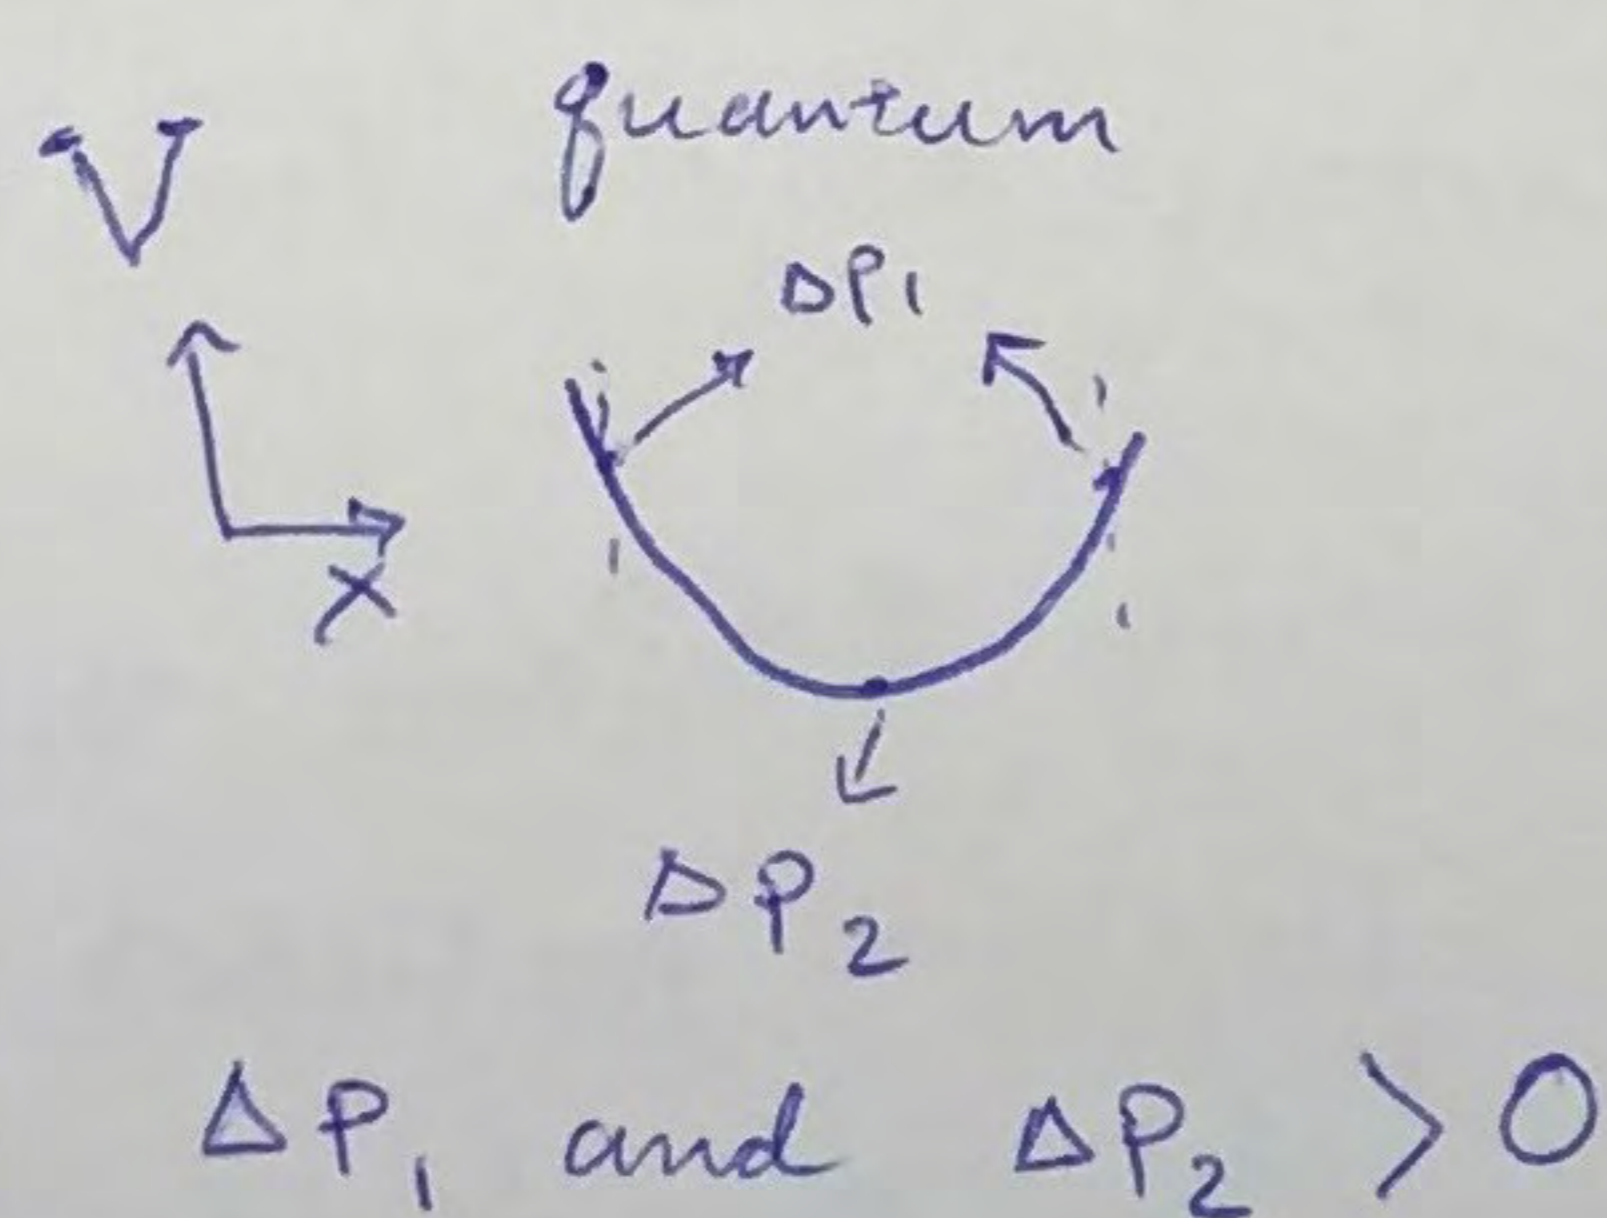 V
quantum
ΔP1
X
ΔP2
ΔP1 and ΔP2 > 0